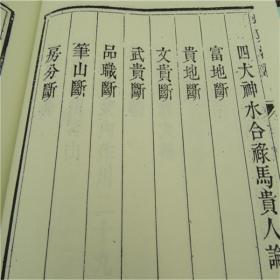 四大神水合祿馬貴人論
富地斷
貴地斷
文貴斷
武貴斷
品職斷
筆山斷
房分斷